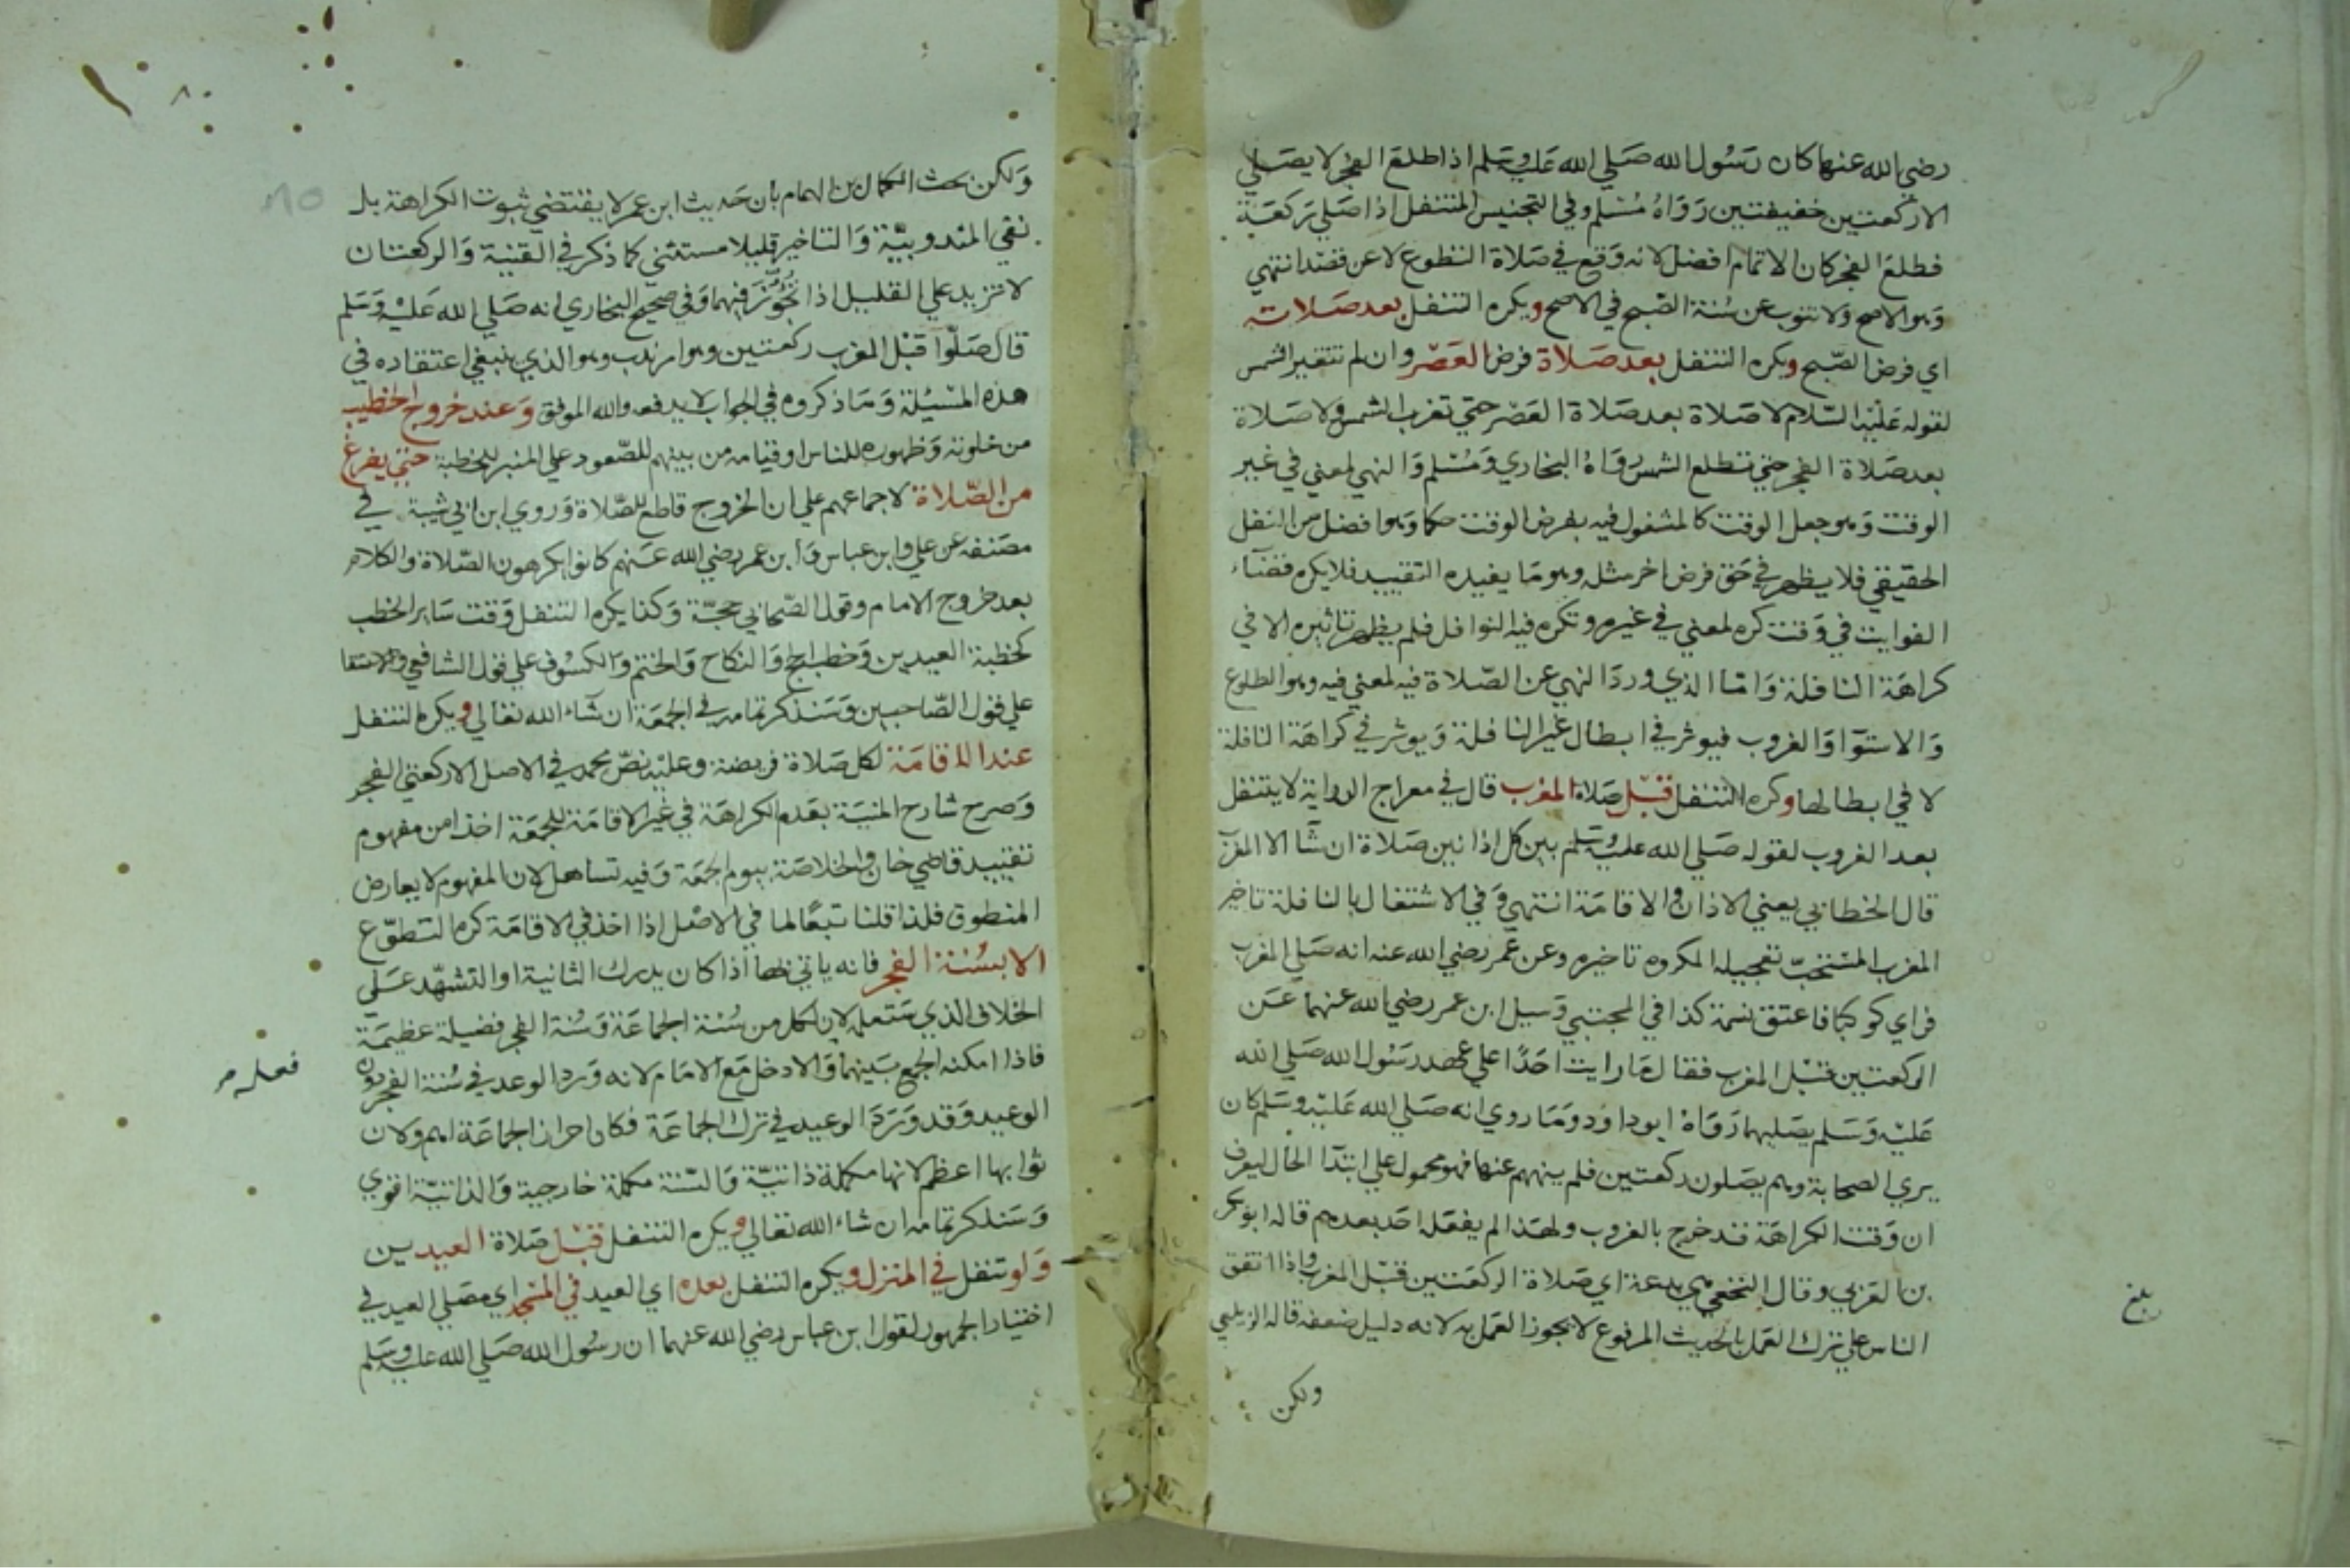 رضي الله عنها كان رسول الله صلي الله عليه وسلم اذا طلع الفجر لا يصلي
الا ركعتين خفيفتين رواه مسلم وفي التجنيس المتنفل اذا صلي ركعة
فطلع الفجر كان الاتمام افضل لانه وقع في صلاة التطوع لا عن قصد انتهي
وهو الاصح ولا تنوب عن سنة الصبح في الاصح ويكره التنفل بعد صلاته
اي فرض الصبح ويكره التنفل بعد صلاة فرض العصر وان لم تتغير الشمس
لقوله عليه السلام لا صلاة بعد صلاة العصر حتي تغرب الشمس ولا صلاة
بعد صلاة الفجر حتي تطلع الشمس رواه البخاري ومسلم والنهي لمعني في غير
الوقت وهو جعل الوقت كالمشغول فيه بفرض الوقت حكما وهو افضل من النفل
الحقيقي فلا يظهر في حق فرض اخر مثله وهو ما يفيده التقييد فلا يكره قضاء
الفوايت في وقت كره لمعني في غيره وتكره فيه النوافل فلم يظهر تاثيره الا في
كراهة النافلة واما الذي ورد النهي عن الصلاة فيه لمعني فيه وهو الطلوع
والاستوا والغروب فيوثر في ابطال غير النافلة ويوثر في كراهة النافلة
لا في ابطالها وكره التنفل قبل صلاة المغرب قال في معراج الدراية لا يتنفل
بعد الغروب لقوله صلي الله عليه وسلم بين كل اذانين صلاة ان شا الا المغرب
قال الخطابي يعني الاذان والاقامة انتهي وفي الاشتغال بالنافلة تاخير
المغرب المستحب تعجيله المكروه تاخيره وعن عمر رضي الله عنه انه صلي المغرب
فراي كوكبا فاعتق نسمة كذا في المجتبي وسيل ابن عمر رضي الله عنهما عن
الركعتين قبل المغرب فقال ما رايت احدا علي عهد رسول الله صلي الله
عليه وسلم يصليهما رواه ابو داود وما روي انه صلي الله عليه وسلم كان
يري الصحابة وهم يصلون ركعتين فلم ينههم عنها فهو محمول علي ابتدا الحال ليعرف
ان وقت الكراهة قد خرج بالغروب ولهذا لم يفعله احد بعدهم قاله ابو بكر
بن العربي وقال النخعي هي بدعة اي صلاة الركعتين قبل المغرب واذا اتفق
الناس علي ترك العمل بالحديث المرفوع لا يجوز العمل به لانه دليل ضعفه قاله الزيلعي
ولكن
بلغ
ولكن بحث الكمال بن الهمام بان حديث ابن عمر لا يقتضي ثبوت الكراهة بل
نفي المندوبية والتاخير قليلا مستثني كما ذكر في القنية والركعتان
لا تزيد علي القليل اذا تجوز فيهما وفي صحيح البخاري انه صلي الله عليه وسلم
قال صلوا قبل المغرب ركعتين وهو امر ندب وهو الذي ينبغي اعتقاده في
هذه المسيلة وما ذكروه في الجواب لا يدفعه والله الموفق وعند خروج الخطيب
من خلوته وظهوره للناس او قيامه من بينهم للصعود علي المنبر للخطبة حتي يفرغ
من الصلاة لاجماعهم علي ان الخروج قاطع للصلاة وروي ابن ابي شيبة في
مصنفه عن علي وابن عباس وابن عمر رضي الله عنهم كانوا يكرهون الصلاة والكلام
بعد خروج الامام وقول الصحابي حجة وكذا يكره التنفل وقت ساير الخطب
كخطبة العيدين وخطب الحج والنكاح والختم والكسوف علي قول الشافعي والاستسقا
علي قول الصاحبين وسنذكر تمامه في الجمعة ان شاء الله تعالي ويكره التنفل
عند الاقامة لكل صلاة فريضة وعليه نص محمد في الاصل الا ركعتي الفجر
وصرح شارح المنية بعدم الكراهة في غير الاقامة للجمعة اخذا من مفهوم
تقييد قاضي خان والخلاصة بيوم الجمعة وفيه تساهل لان المفهوم لا يعارض
المنطوق فلذا قلنا تبعا لما في الاصل اذا اخذ في الاقامة كره التطوع
الا بسنة الفجر فانه ياتي بها اذا كان يدرك الثانية او التشهد علي
الخلاف الذي ستعمله لان لكل من سنة الجماعة وسنة الفجر فضيلة عظيمة
فاذا امكنه الجمع بينهما والا دخل مع الامام لانه ورد الوعد في سنة الفجر دون
فعله م
الوعيد وقد ورد الوعيد في ترك الجماعة فكان احراز الجماعة اهم ولان
ثوابها اعظم لانها مكملة ذاتية والسنة مكملة خارجية والذاتية اقوي
وسنذكر تمامه ان شاء الله تعالي ويكره التنفل قبل صلاة العيدين
ولو تنفل في المنزل ويكره التنفل بعده اي العيد في المسجد اي مصلي العيد في
اختيار الجمهور لقول ابن عباس رضي الله عنهما ان رسول الله صلي الله عليه وسلم